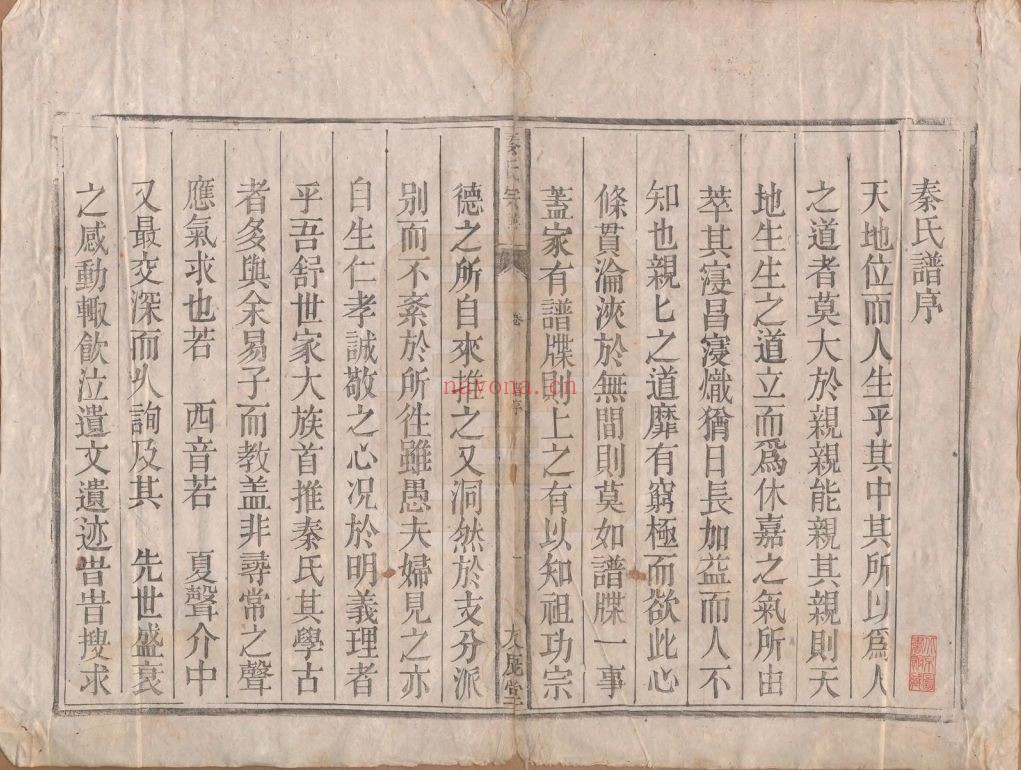 秦氏譜序
天地位而人生乎其中其所以爲人
之道者莫大於親親能親其親則天
地生生之道立而爲休嘉之氣所由
萃其寖昌寖熾猶日長加益而人不
知也親匕之道靡有窮極而欲此心
條貫淪浹於無間則莫如譜牒一事
蓋家有譜牒則上之有以知祖功宗
秦氏宗譜
卷
序
一
友鹿堂
德之所自來推之又洞然於支分派
别而不紊於所徃雖愚夫婦見之亦
自生仁孝誠敬之心况於明義理者
乎吾舒世家大族首推秦氏其學古
者多與余易子而教盖非尋常之聲
應氣求也若 西音若 夏聲介中
又最交深而乆詢及其 先世盛衰
之感動輙飲泣遺文遺迹昔昔搜求
nayona.cn